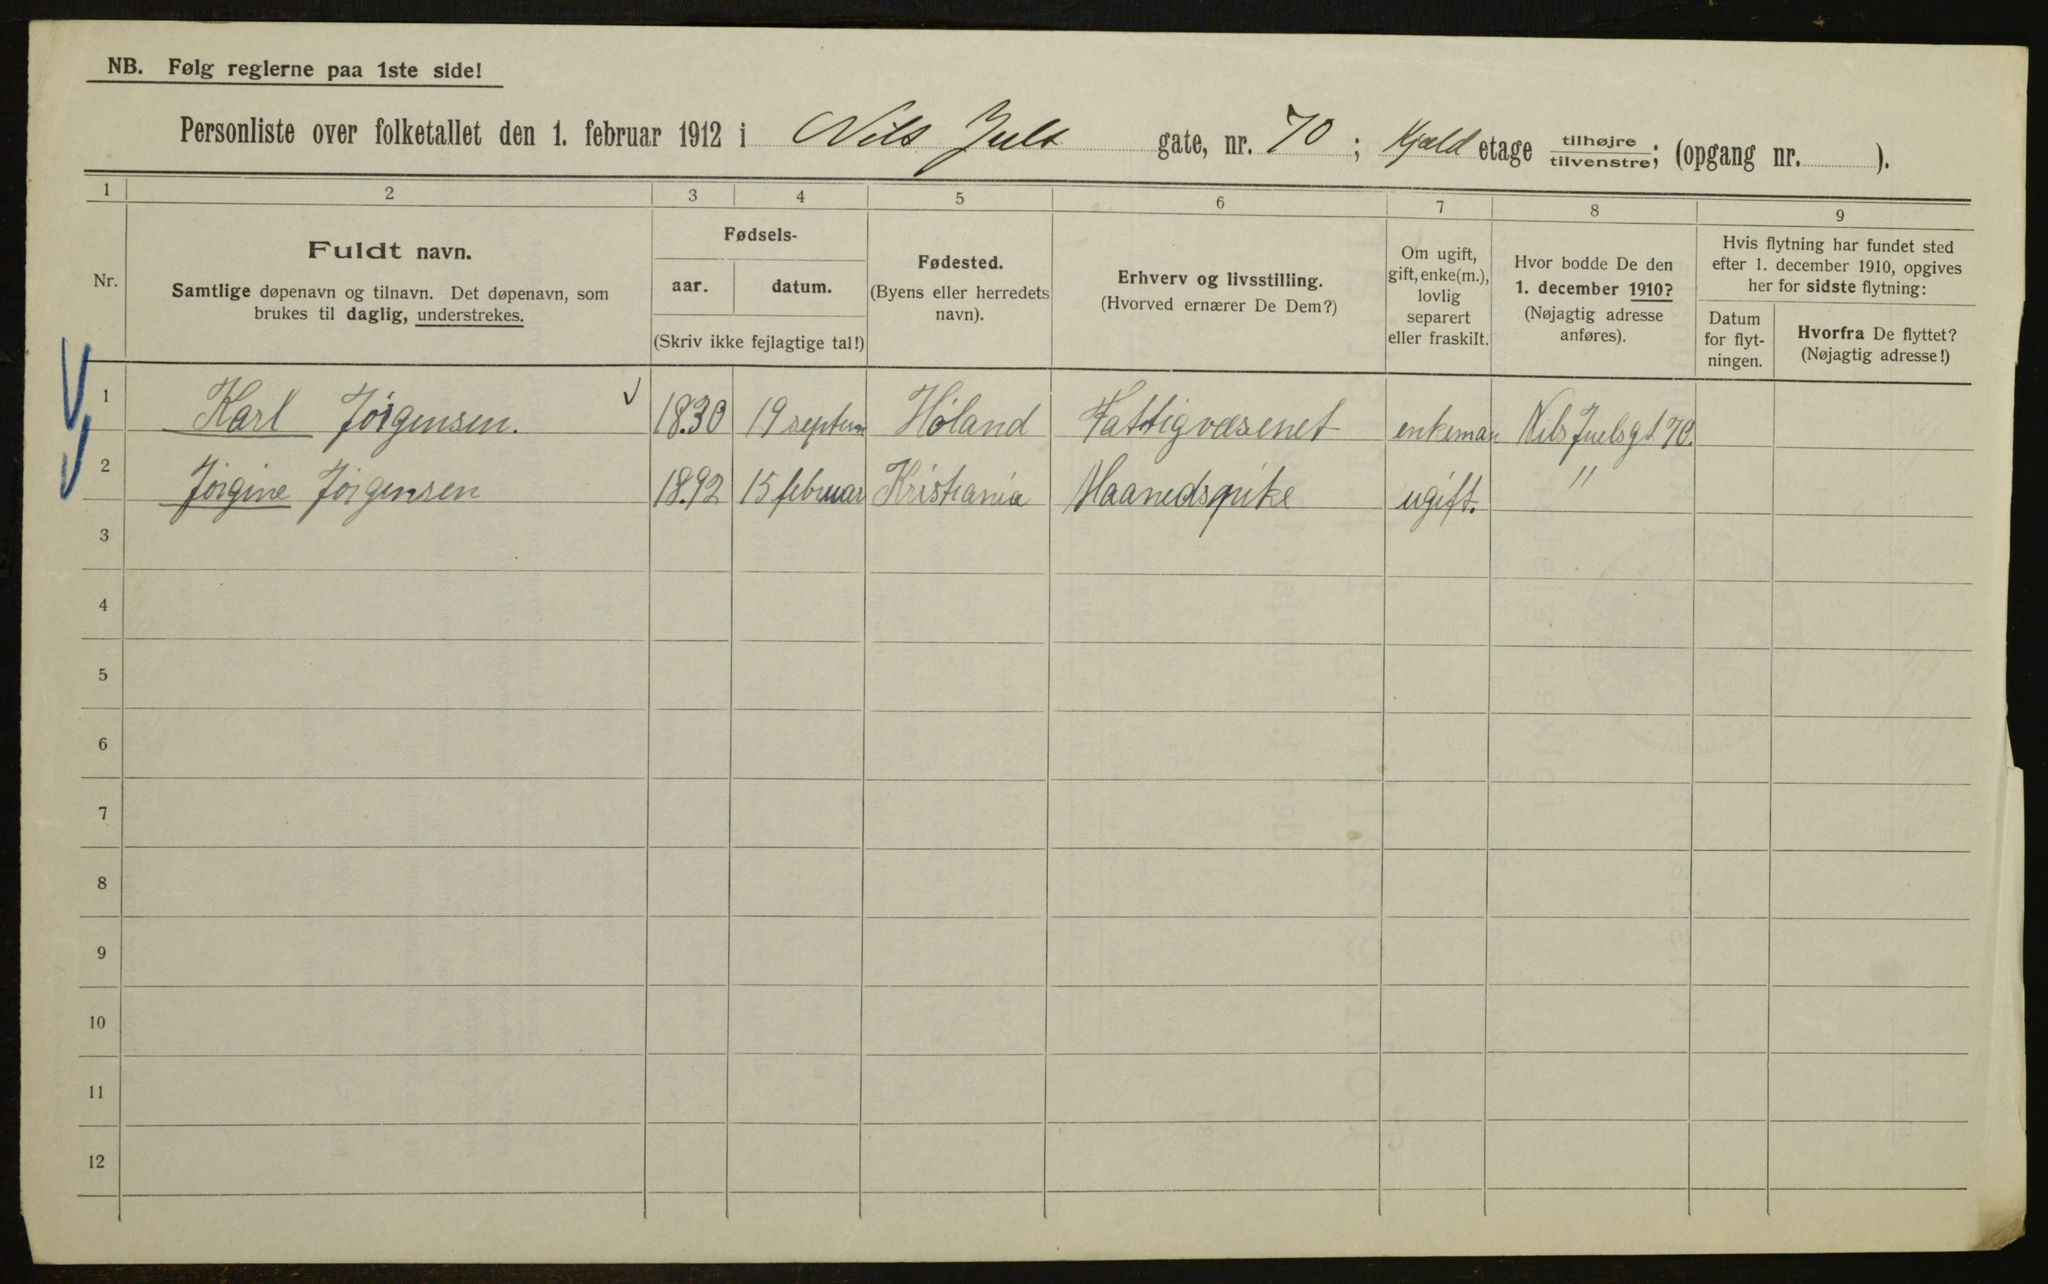 NB. Følg reglerne paa 1ste side!
Personliste over folketallet den 1. februar 1912 i Nils Juls gate, nr. 70; Kjæld etage tilhøjre/tilvenstre; (opgang nr. ).
1 2 3 4 5 6 7 8 9
Nr.
Fuldt navn.
Samtlige døpenavn og tilnavn. Det døpenavn, som
brukes til daglig, understrekes.
Fødsels-
aar. datum.
(Skriv ikke fejlagtige tal!)
Fødested.
(Byens eller herredets
navn).
Erhverv og livsstilling.
(Hvorved ernærer De Dem?)
Om ugift,
gift, enke(m.),
lovlig
separert
eller fraskilt.
Hvor bodde De den
1. december 1910?
(Nøjagtig adresse
anføres).
Hvis flytning har fundet sted
efter 1. december 1910, opgives
her for sidste flytning:
Datum
for flyt-
ningen.
Hvorfra De flyttet?
(Nøjagtig adresse!)
1 Karl Jørgensen. 1830 19 septem Høland Fattigvæsenet enkeman Nils Juelsgt 70.
2 Jørgine Jørgensen 1892 15 februar Kristiania Maanedspike ugift. "
3
4
5
6
7
8
9
10
11
12